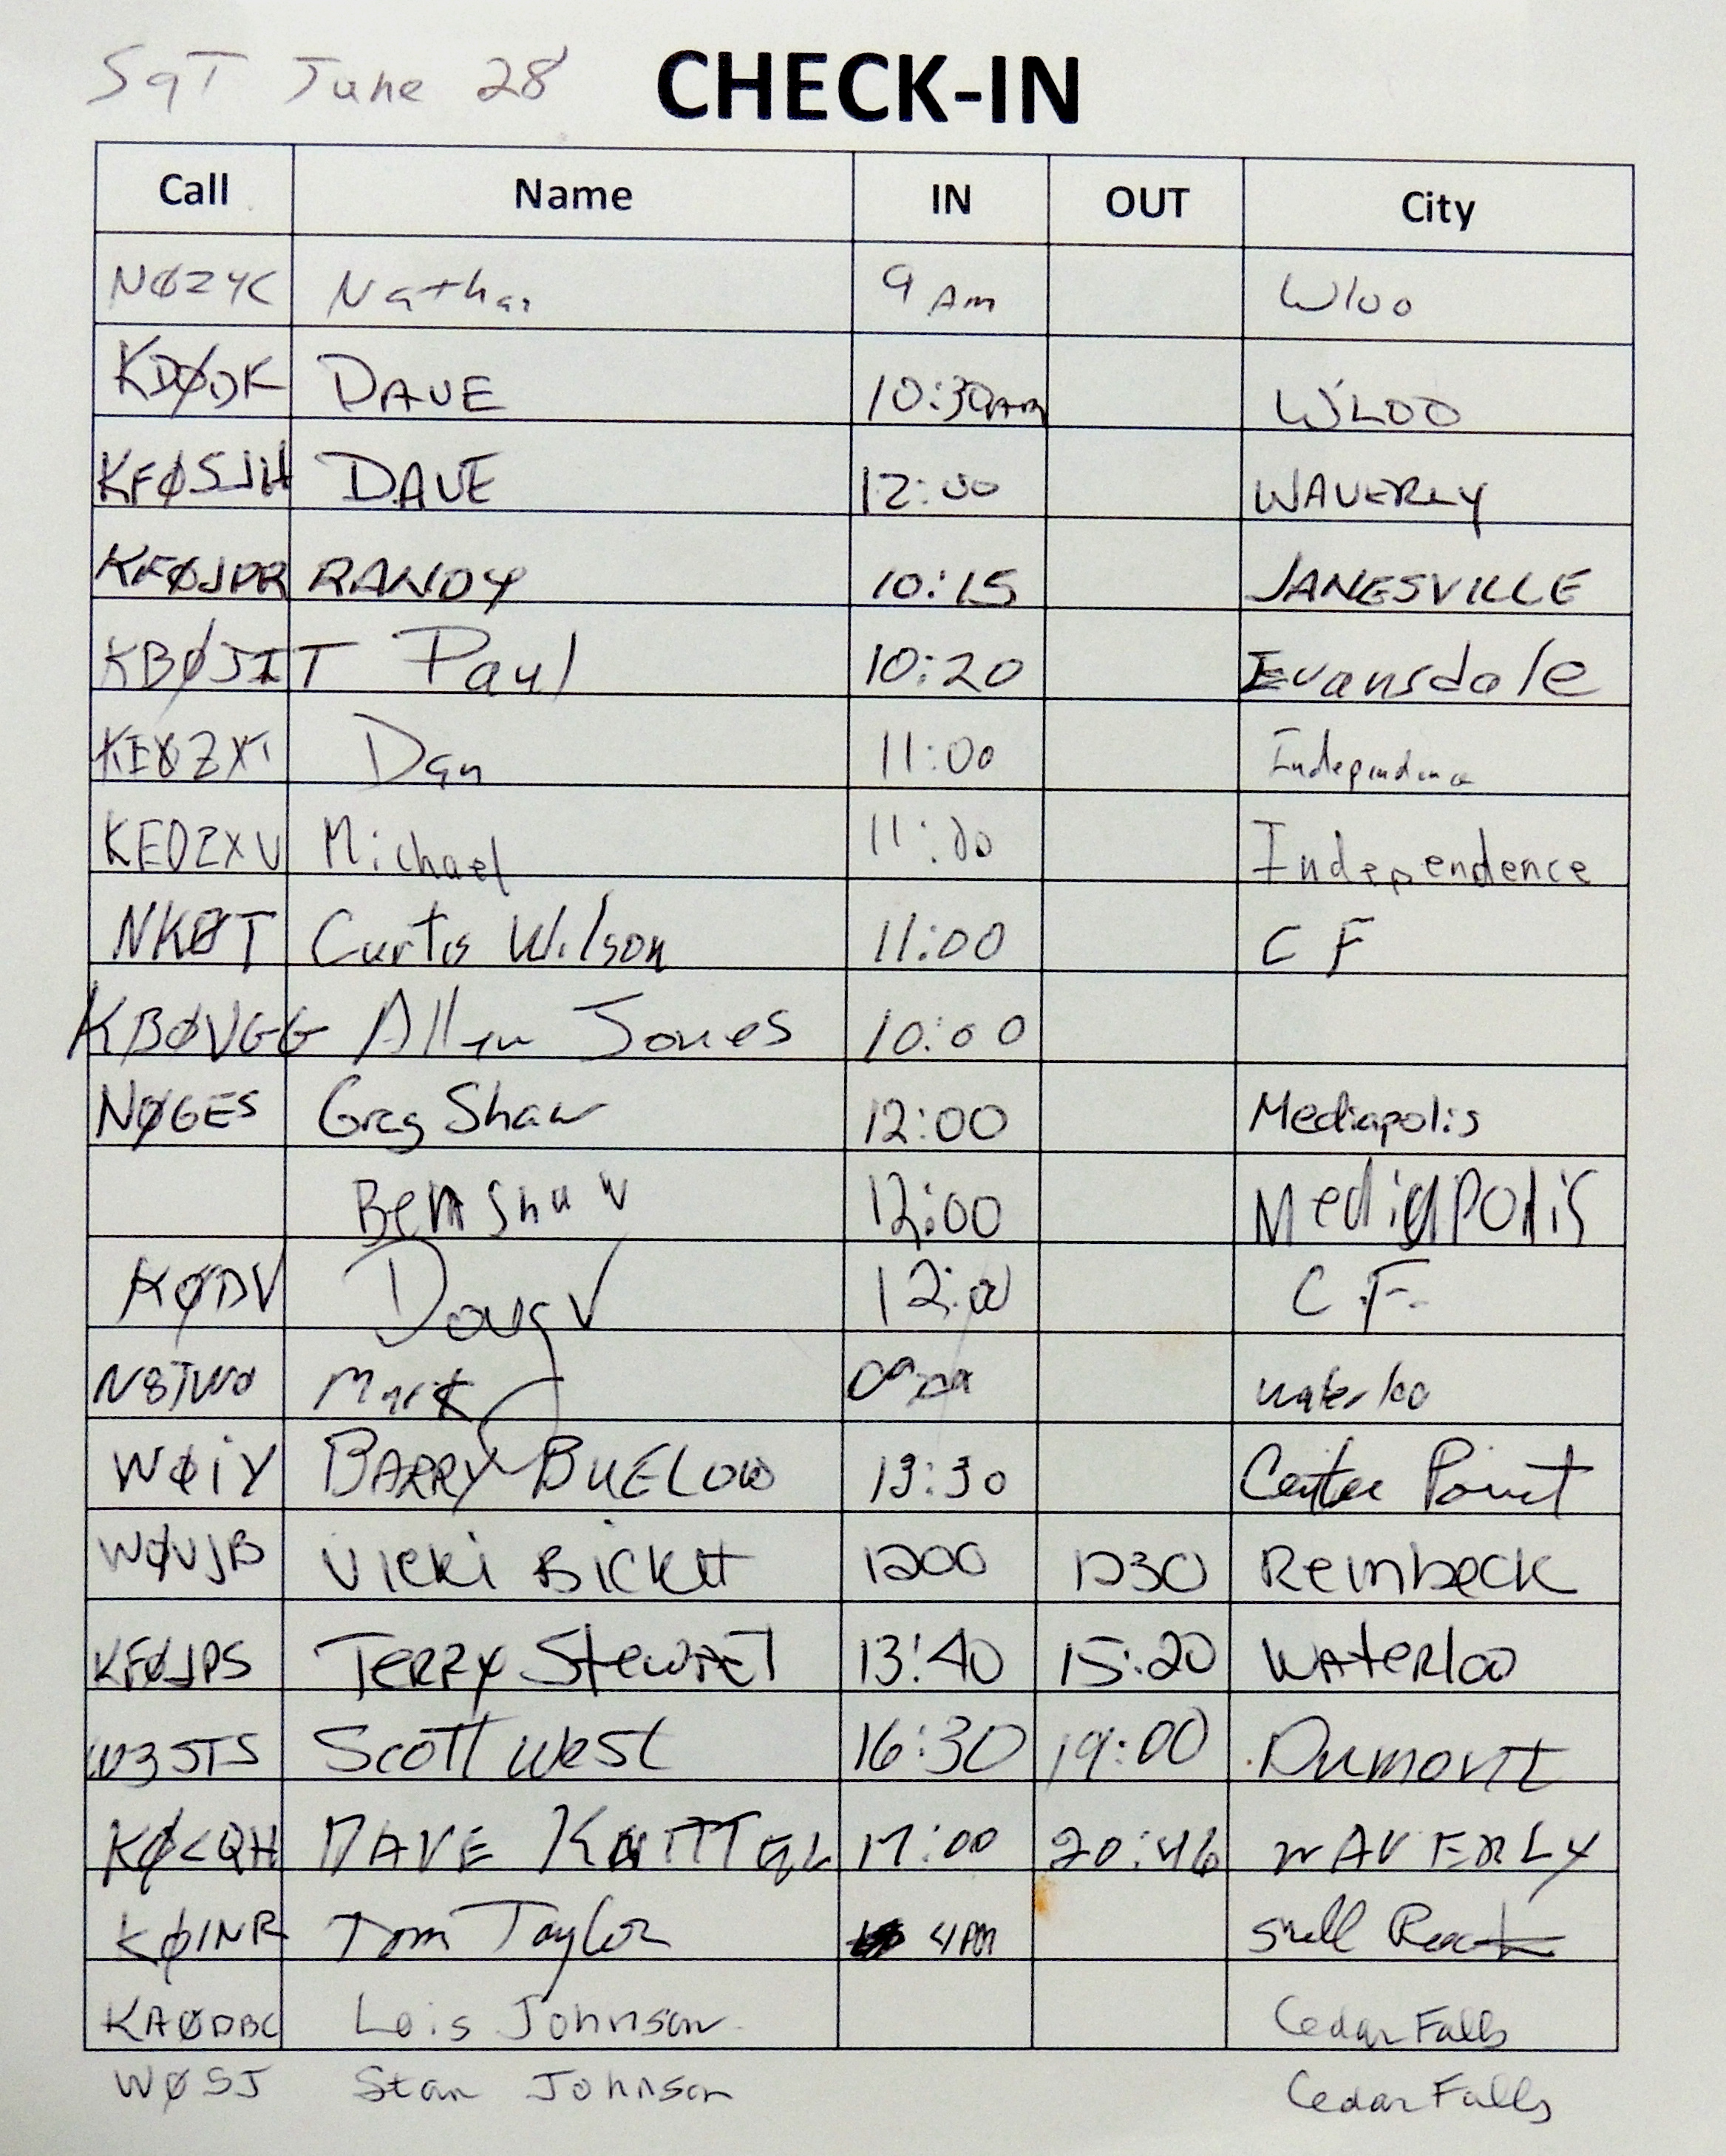 Sat June 28 CHECK-IN
Call Name IN OUT City
NØZYC Nathan 9 Am Wloo
KDØDK DAVE 10:30AM WLOO
KFØSJH DAVE 12:00 WAVERLY
KFØJPR RANDY 10:15 JANESVILLE
KBØJIT Paul 10:20 Evansdale
KEØZXT Dan 11:00 Independence
KE0ZXU Michael 11:00 Independence
NKØT Curtis Wilson 11:00 C F
KBØVGG Allen Jones 10:00
NØGES Greg Shaw 12:00 Mediapolis
Ben Shaw 12:00 Mediapolis
KØDV Doug V 12:00 C.F.
Mark waterloo
WØiY BARRY BUELOW 13:30 Center Point
WØVJB Vicki Bickett 1200 1230 Reinbeck
KFØJPS TERRY Stewart 13:40 15:20 Waterloo
W3STS Scott West 16:30 19:00 Dumont
KØCQH DAVE KNITTEL 17:00 20:46 WAVERLY
KØINR Tom Taylor 4PM Shell Rock
KAØDBC Lois Johnson Cedar Falls
WØSJ Stan Johnson Cedar Falls